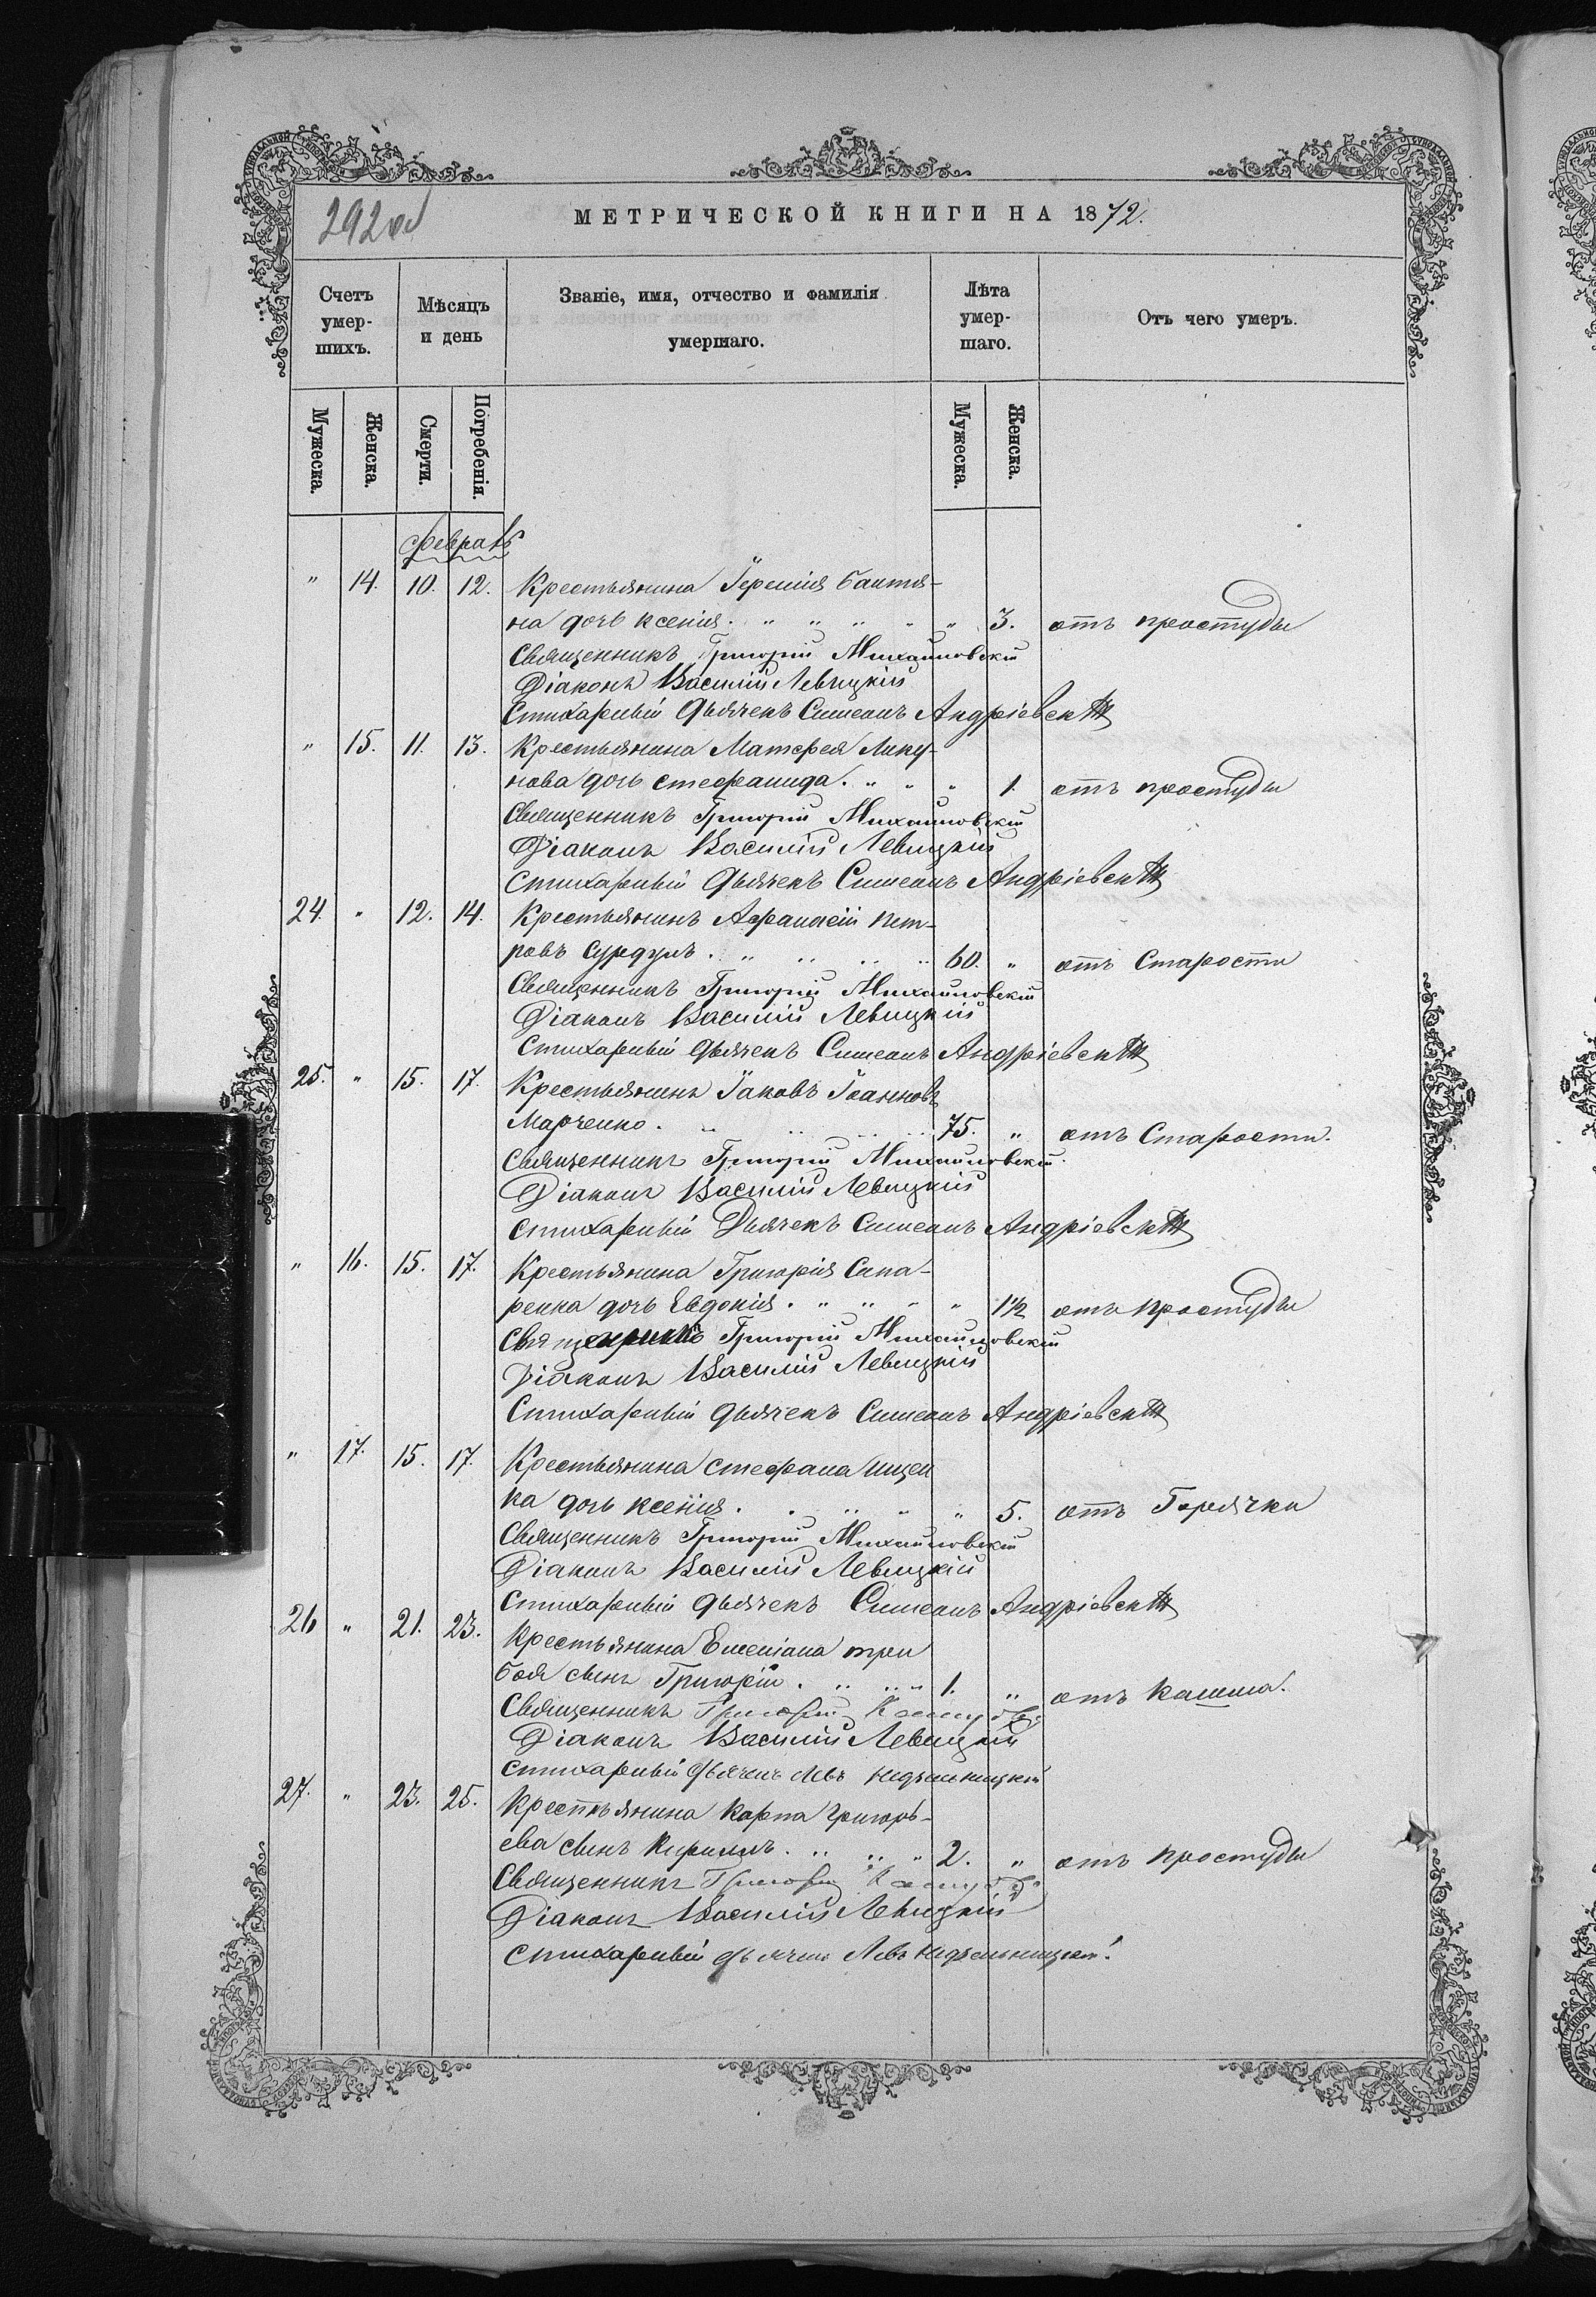 292 об
МЕТРИЧЕСКОЙ КНИГИ НА 1872.
Счетъ умер-шихъ.
Мѣсяцъ и день
Званіе, имя, отчество и фамилія умершаго.
Лѣта умер-шаго.
Отъ чего умеръ.
Мужеска.
Женска.
Смерти.
Погребенія.
Мужеска.
Женска.
Февраль
" 14. 10. 12. Крестьянина Іеремія Баштя-
на дочь Ксенія. " " " " " 3. отъ простуды
Священникъ Григорій Михайловскій
Діаконъ Василій Левицкій
Стихарный Дьячекъ Симеонъ Андріевскій
" 15. 11. 13. Крестьянина Матфея Лику-
нова дочь Стефанида. " " " 1. отъ простуды
Священникъ Григорій Михайловскій
Діаконъ Василій Левицкій
Стихарный Дьячекъ Симеонъ Андріевскій
24. " 12. 14. Крестьянинъ Афанасій Пет-
ровъ Сурдулъ. " " " " 60. " отъ Старости
Священникъ Григорій Михайловскій
Діаконъ Василій Левицкій
Стихарный Дьячекъ Симеонъ Андріевскій
25. " 15. 17. Крестьянинъ Іаковъ Іоанновъ
Марченко. " " " " 75. " отъ Старости.
Священникъ Григорій Михайловскій.
Діаконъ Василій Левицкій
Стихарный Дьячекъ Симеонъ Андріевскій
" 16. 15. 17. Крестьянина Григорія Сина-
ренка дочь Евдокія. " " " " 1½ отъ простуды
Священникъ Григорій Михайловскій
Діаконъ Василій Левицкій
Стихарный Дьячекъ Симеонъ Андріевскій
" 17. 15. 17. Крестьянина Стефана Ищен
ка дочь Ксенія. . " " " 5. отъ Горячки
Священникъ Григорій Михайловскій
Діаконъ Василій Левицкій
Стихарный Дьячекъ Симеонъ Андріевскій
26 " 21. 23. Крестьянина Емеліана
сынъ Григорій. " " " 1. " отъ кашля.
Священникъ Григорій
Діаконъ Василій Левицкій
Стихарный Дьячекъ Левъ Недзельницкій
27. " 23. 25. Крестьянина Карпа Григорь-
ева сынъ Кириллъ. " " " 2. " отъ простуды
Священникъ Григорій
Діаконъ Василій Левицкій
Стихарный Дьячекъ Левъ Недзельницкій.